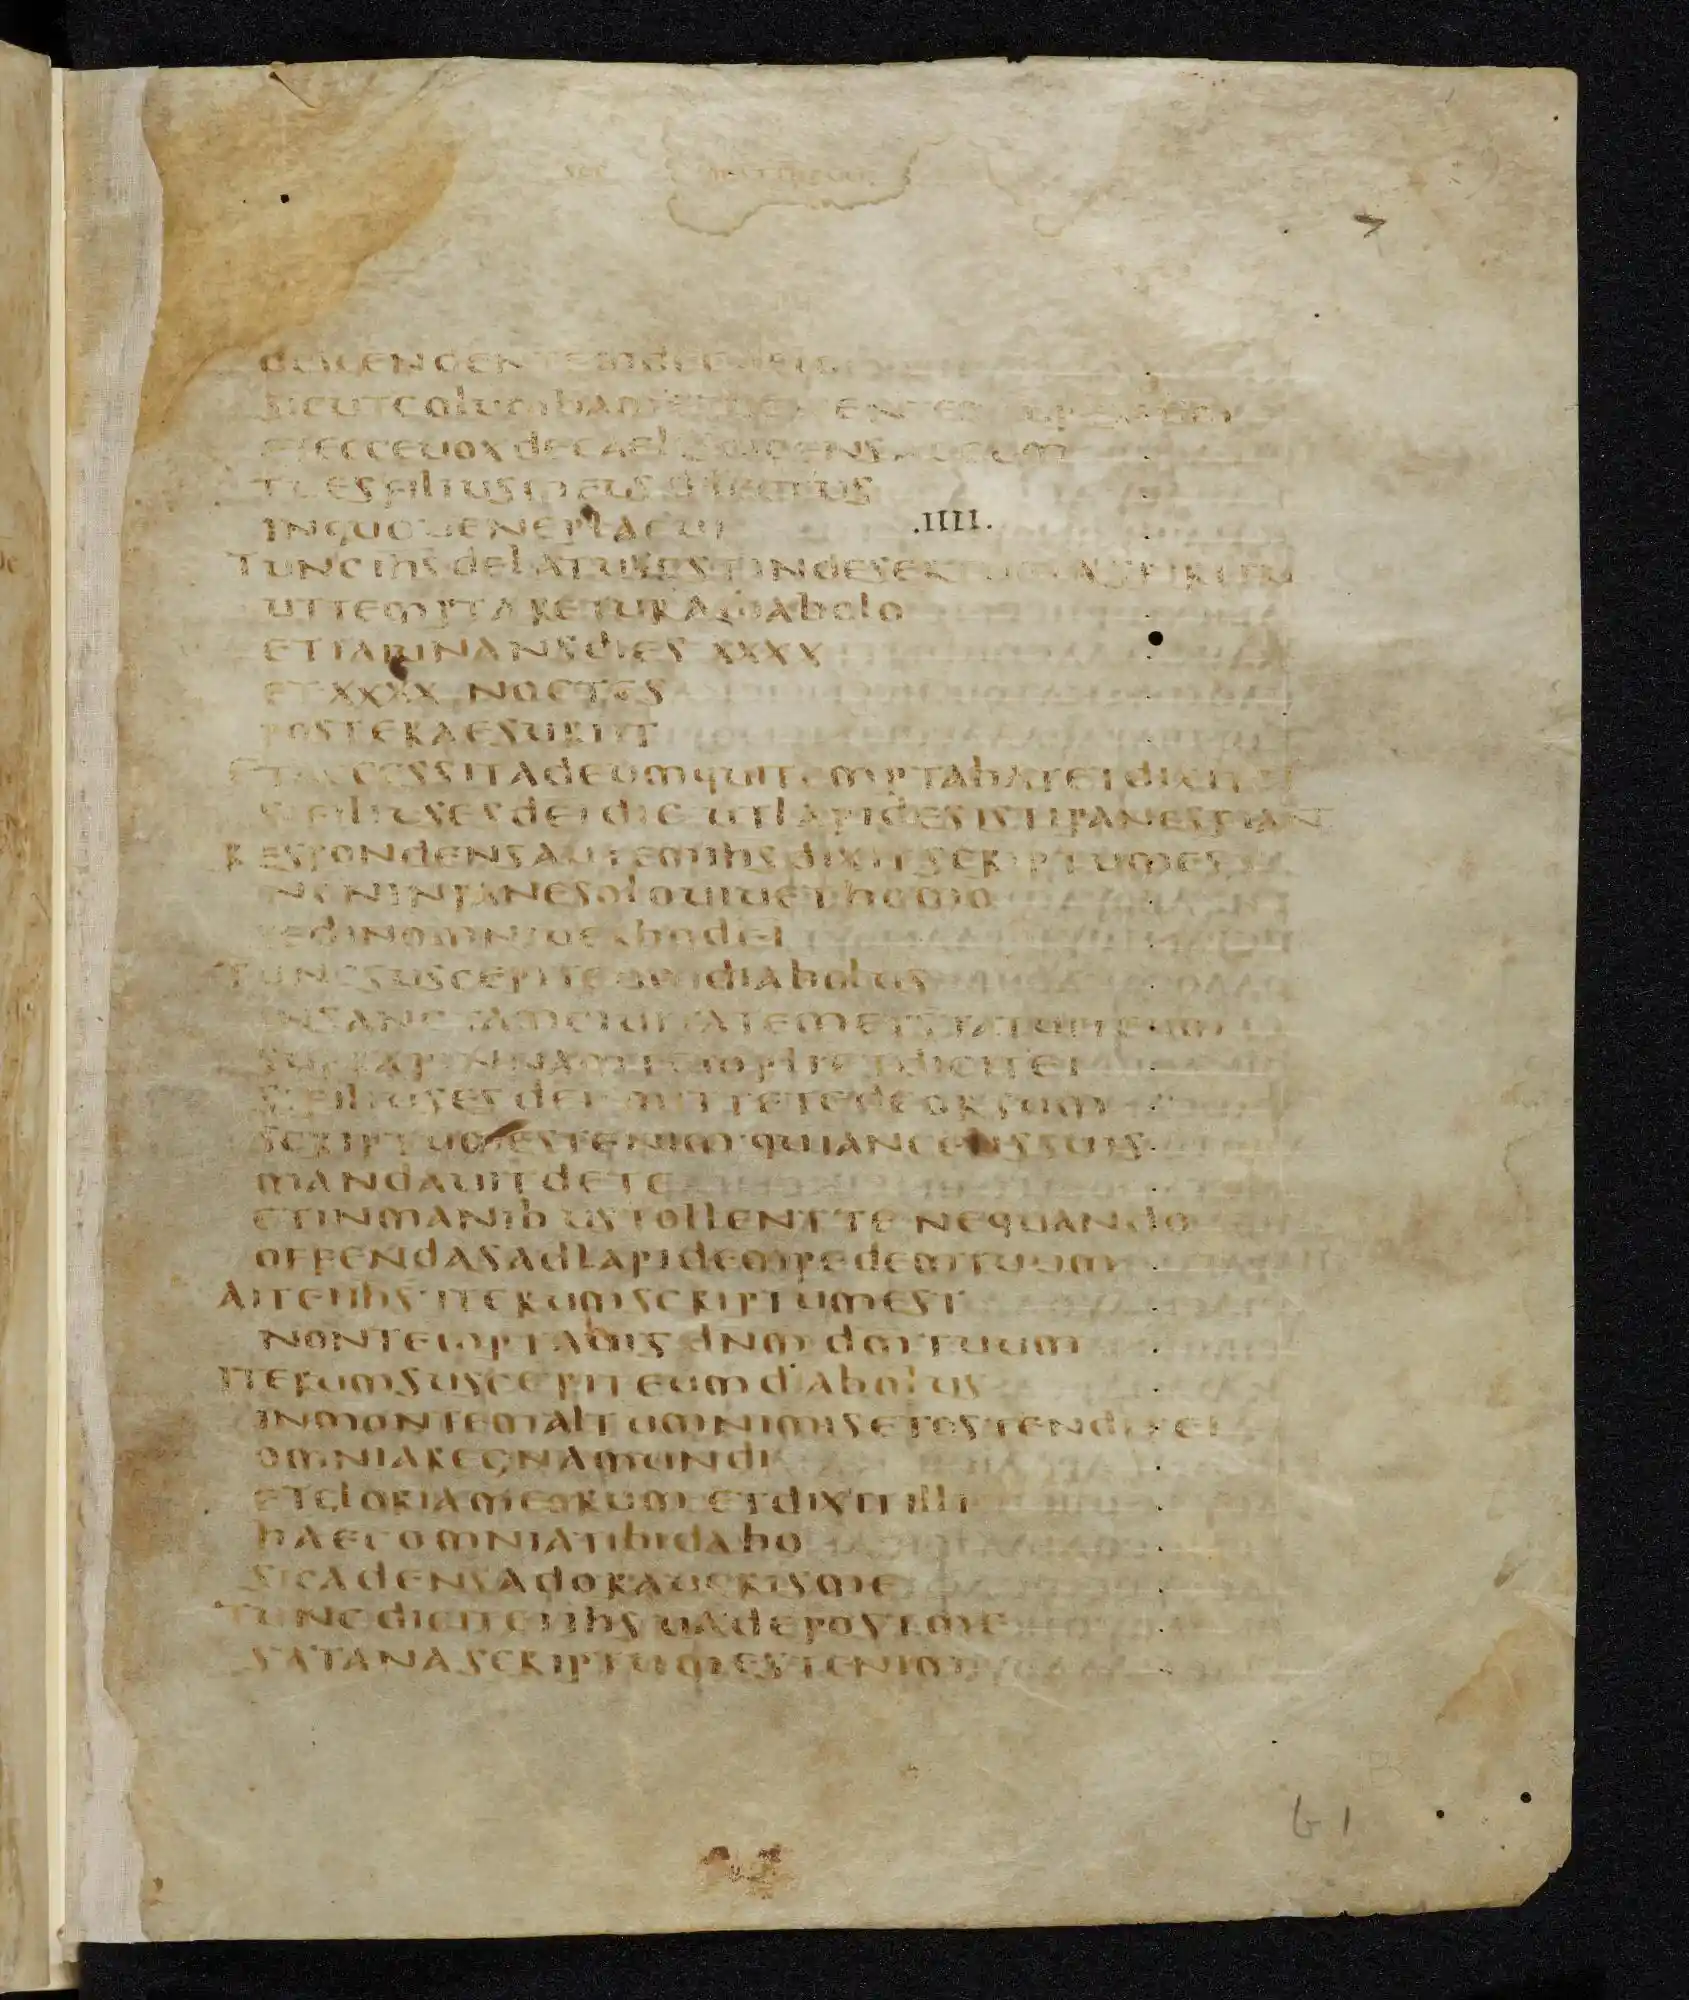 SEC MATTHEUM
7
SICUTCOlUmbAm
ETECCEUOXdECAElO AdEUM
TUESFILIUSMEUSdILECTUS
INQUOBENEPlACUI .IIII.
TUNCIHSdElATUSESTINdESERTUM ASPIRITU
UTTEMPTARETURAdIAbOlO
ETIAIUNANSdIES XXXX
ETXXXX NOCTES
POSTERAESURIIT
ETACCESSITAdEUMQUITEMPTAbATETdIXIT EI
SIFILIUSESdEIdIC UTLAPIdESISTIPANESFIANT
RESPONdENSAUTEMIHSdIXITSCRIPTUMEST
NONINPANESOLOUIUEThOMO
SEdINOMNIUERbOdEI
TUNCSUSCEPITEUMdIAbOlUS
INSANCTAMCIUITATEMETSTATUITEUM
SUPRAPINNAMTEMPLIETdICITEI
SIFILIUSESdEI MITTETEdEORSUM
SCRIPTUMESTENIM QUIANGELISSUIS
MANdAUITdETE
ETINMANIbUSTOLLENTTE NEQUANdO
OFFENdASAdLAPIdEMPEdEMTUUM
AITEIIHS ITERUMSCRIPTUMEST
NONTEMPTAbIS dNM dMTUUM
ITERUMSUSCEPITEUMdIAbOlUS
INMONTEMALTUMNIMISETOSTENdITEI
OMNIAREGNAMUNdI
ETGLORIAMEORUM ETdIXITILLI
hAECOMNIATIbIdAbO
SICAdENSAdORAUERISME
TUNCdICITEIIHS UAdEPOSTME
SATANASCRIPTUMESTENIM
G 1